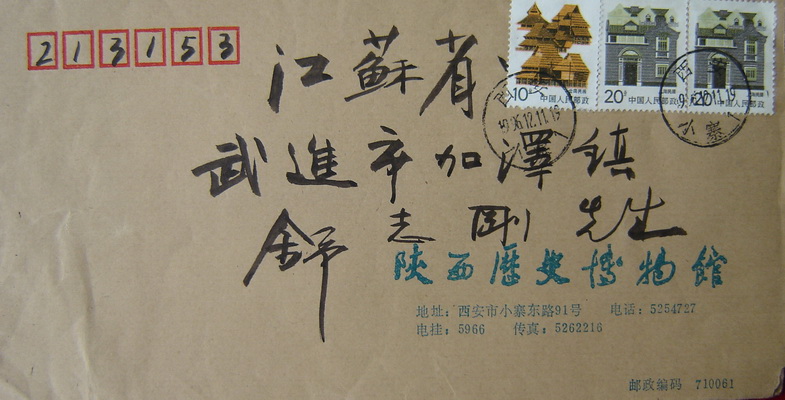 213153
江蘇省
武進市加澤鎮
舒志剛先生
10分 20分 20分
中国人民邮政 中国人民邮政 中国人民邮政
西安
1996.12.11.19
西安
12.11.19
小寨
陝西歷史博物館
地址：西安市小寨东路91号 电话：5254727
电挂：5966 传真：5262216
邮政编码 710061